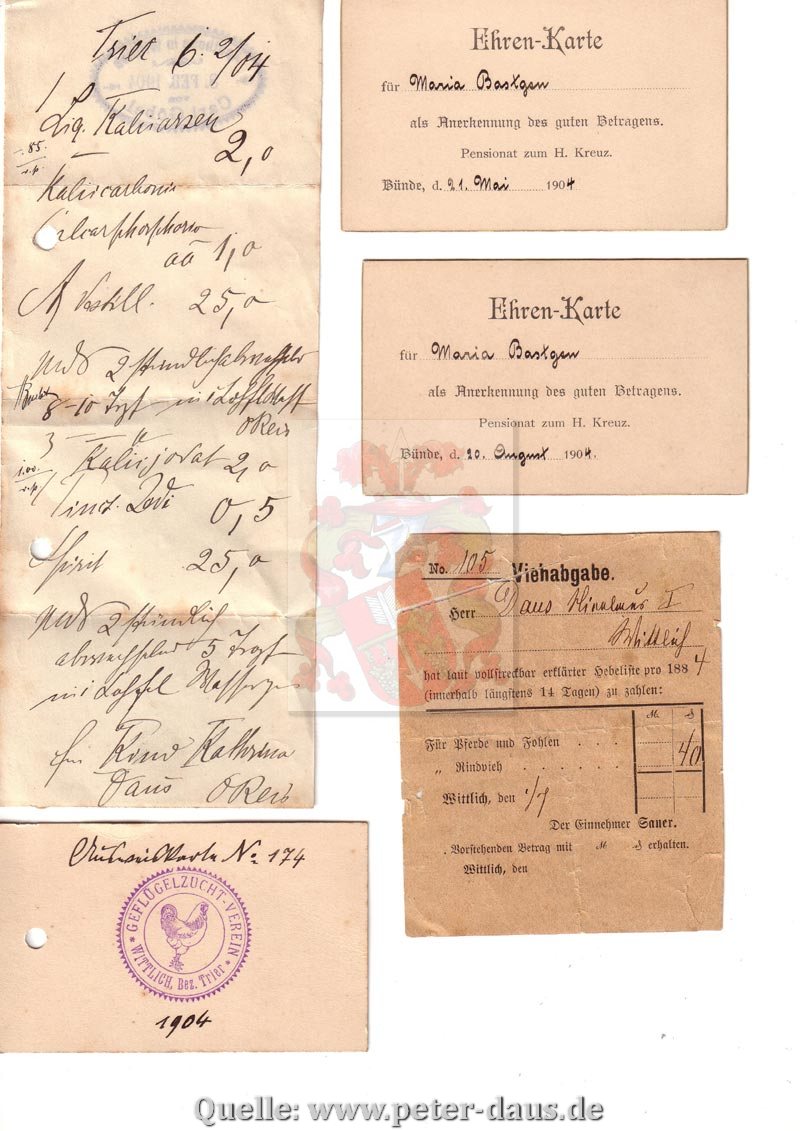 Trier 6. 2/04
1
Liq. Kali arsen
2,0
-.85.
Kali carbonic
Calcar phosphoric
aa 1,0
A destill. 25,0
MDS 2 stündlich abwechseln
8-10 Tropf
3
Kali jodat 2,0
1.00
Tinct. Jodi 0,5
Spirit 25,0
MDS 2 stündlich
abwechselnd 5 Tropf
Kind Kathrina
Daus
Ehren-Karte
für Maria Bastgen
als Anerkennung des guten Betragens.
Pensionat zum H. Kreuz.
Bünde, d. 21. Mai 1904
Ehren-Karte
für Maria Bastgen
als Anerkennung des guten Betragens.
Pensionat zum H. Kreuz.
Bünde, d. 20. August 1904.
No. 105 Viehabgabe.
Herr Daus I
Wittlich
hat laut vollstreckbar erklärter Hebeliste pro 1884
(innerhalb längstens 14 Tagen) zu zahlen:
M. ₰
Für Pferde und Fohlen . . . . 40
„ Rindvieh . . . . .
Wittlich, den 1/7
Der Einnehmer Sauer.
Vorstehenden Betrag mit M. ₰ erhalten.
Wittlich, den
Ausweiskarte No 174
GEFLÜGELZUCHT-VEREIN
* WITTLICH, Bez. Trier *
1904
Quelle: www.peter-daus.de